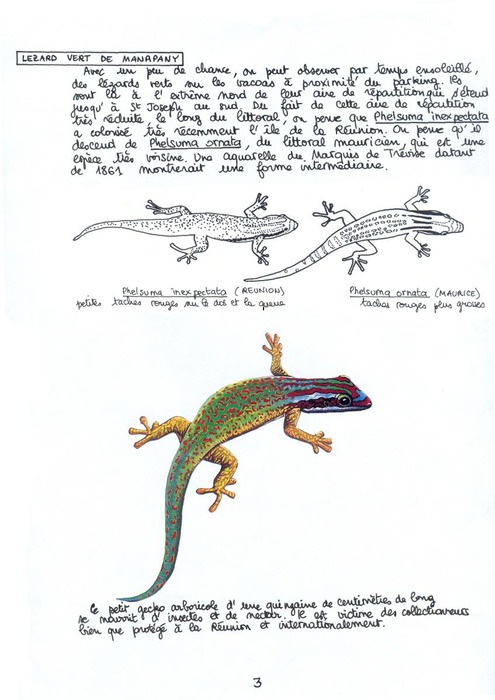 LEZARD VERT DE MANAPANY
Avec un peu de chance, on peut observer par temps ensoleillé,
des lézards verts sur les vacoas à proximité du parking. Ils
sont là à l'extrême nord de leur aire de répartition qui s'étend
jusqu'à St Joseph au sud. Du fait de cette aire de répartition
très réduite, le long du littoral, on pense que Phelsuma inexpectata
a colonisé très récemment l'île de la Réunion. On pense qu'il
descend de Phelsuma ornata, du littoral mauricien, qui est une
espèce très voisine. Une aquarelle du Marquis de Trévise datant
de 1861 montrerait une forme intermédiaire.
Phelsuma inexpectata (REUNION)
petites taches rouges sur le dos et la queue
Phelsuma ornata (MAURICE)
taches rouges plus grosses
Ce petit gecko arboricole d'une quinzaine de centimètres de long
se nourrit d'insectes et de nectar. Il est victime des collectionneurs
bien que protégé à la Réunion et internationalement.
3